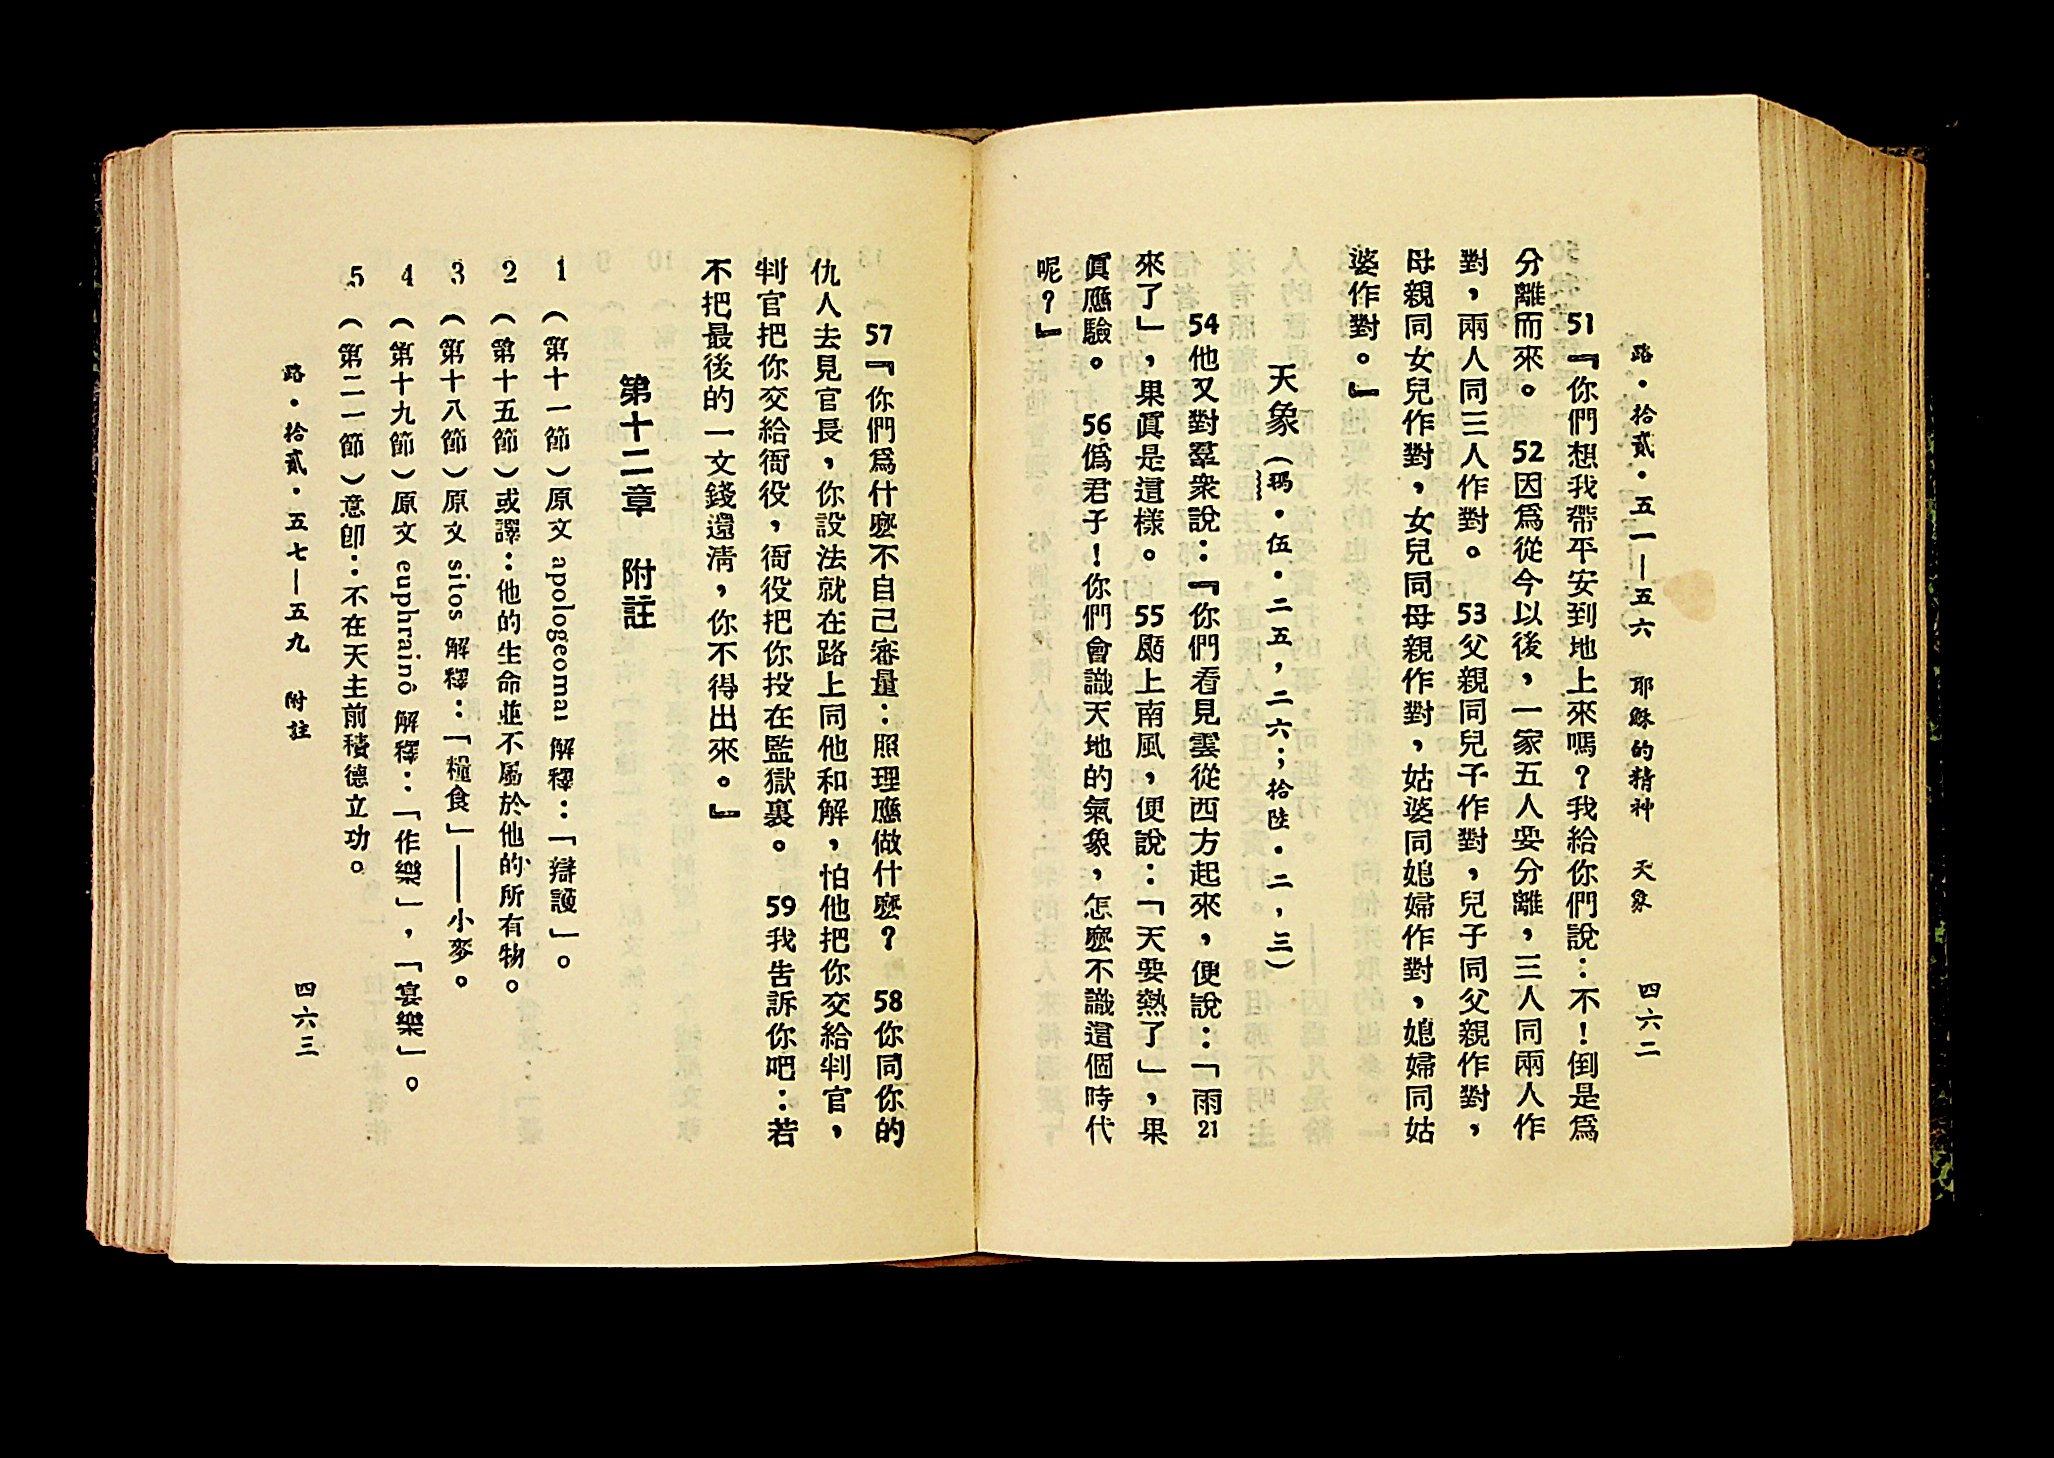 路・拾貳・五一—五六 耶穌的精神 天象 四六二
51『你們想我帶平安到地上來嗎？我給你們說：不！倒是爲
分離而來。 52因爲從今以後，一家五人要分離，三人同兩人作
對，兩人同三人作對。 53父親同兒子作對，兒子同父親作對，
母親同女兒作對，女兒同母親作對，姑婆同媳婦作對，媳婦同姑
婆作對。』
天象（瑪・伍・二五，二六；拾陸・二，三）
54他又對羣衆說：『你們看見雲從西方起來，便說：「雨21
來了」，果眞是這樣。 55颳上南風，便說：「天要熱了」，果
眞應驗。 56僞君子！你們會識天地的氣象，怎麼不識這個時代
呢？』
57『你們爲什麼不自己審量：照理應做什麼？ 58你同你的
仇人去見官長，你設法就在路上同他和解，怕他把你交給判官，
判官把你交給衙役，衙役把你投在監獄裏。 59我告訴你吧：若
不把最後的一文錢還淸，你不得出來。』
第十二章 附註
1（第十一節）原文 apologeomai 解釋：「辯護」。
2（第十五節）或譯：他的生命並不屬於他的所有物。
3（第十八節）原文 sitos 解釋：「糧食」——小麥。
4（第十九節）原文 euphrainô 解釋：「作樂」，「宴樂」。
5（第二一節）意卽：不在天主前積德立功。
路・拾貳・五七—五九 附註 四六三